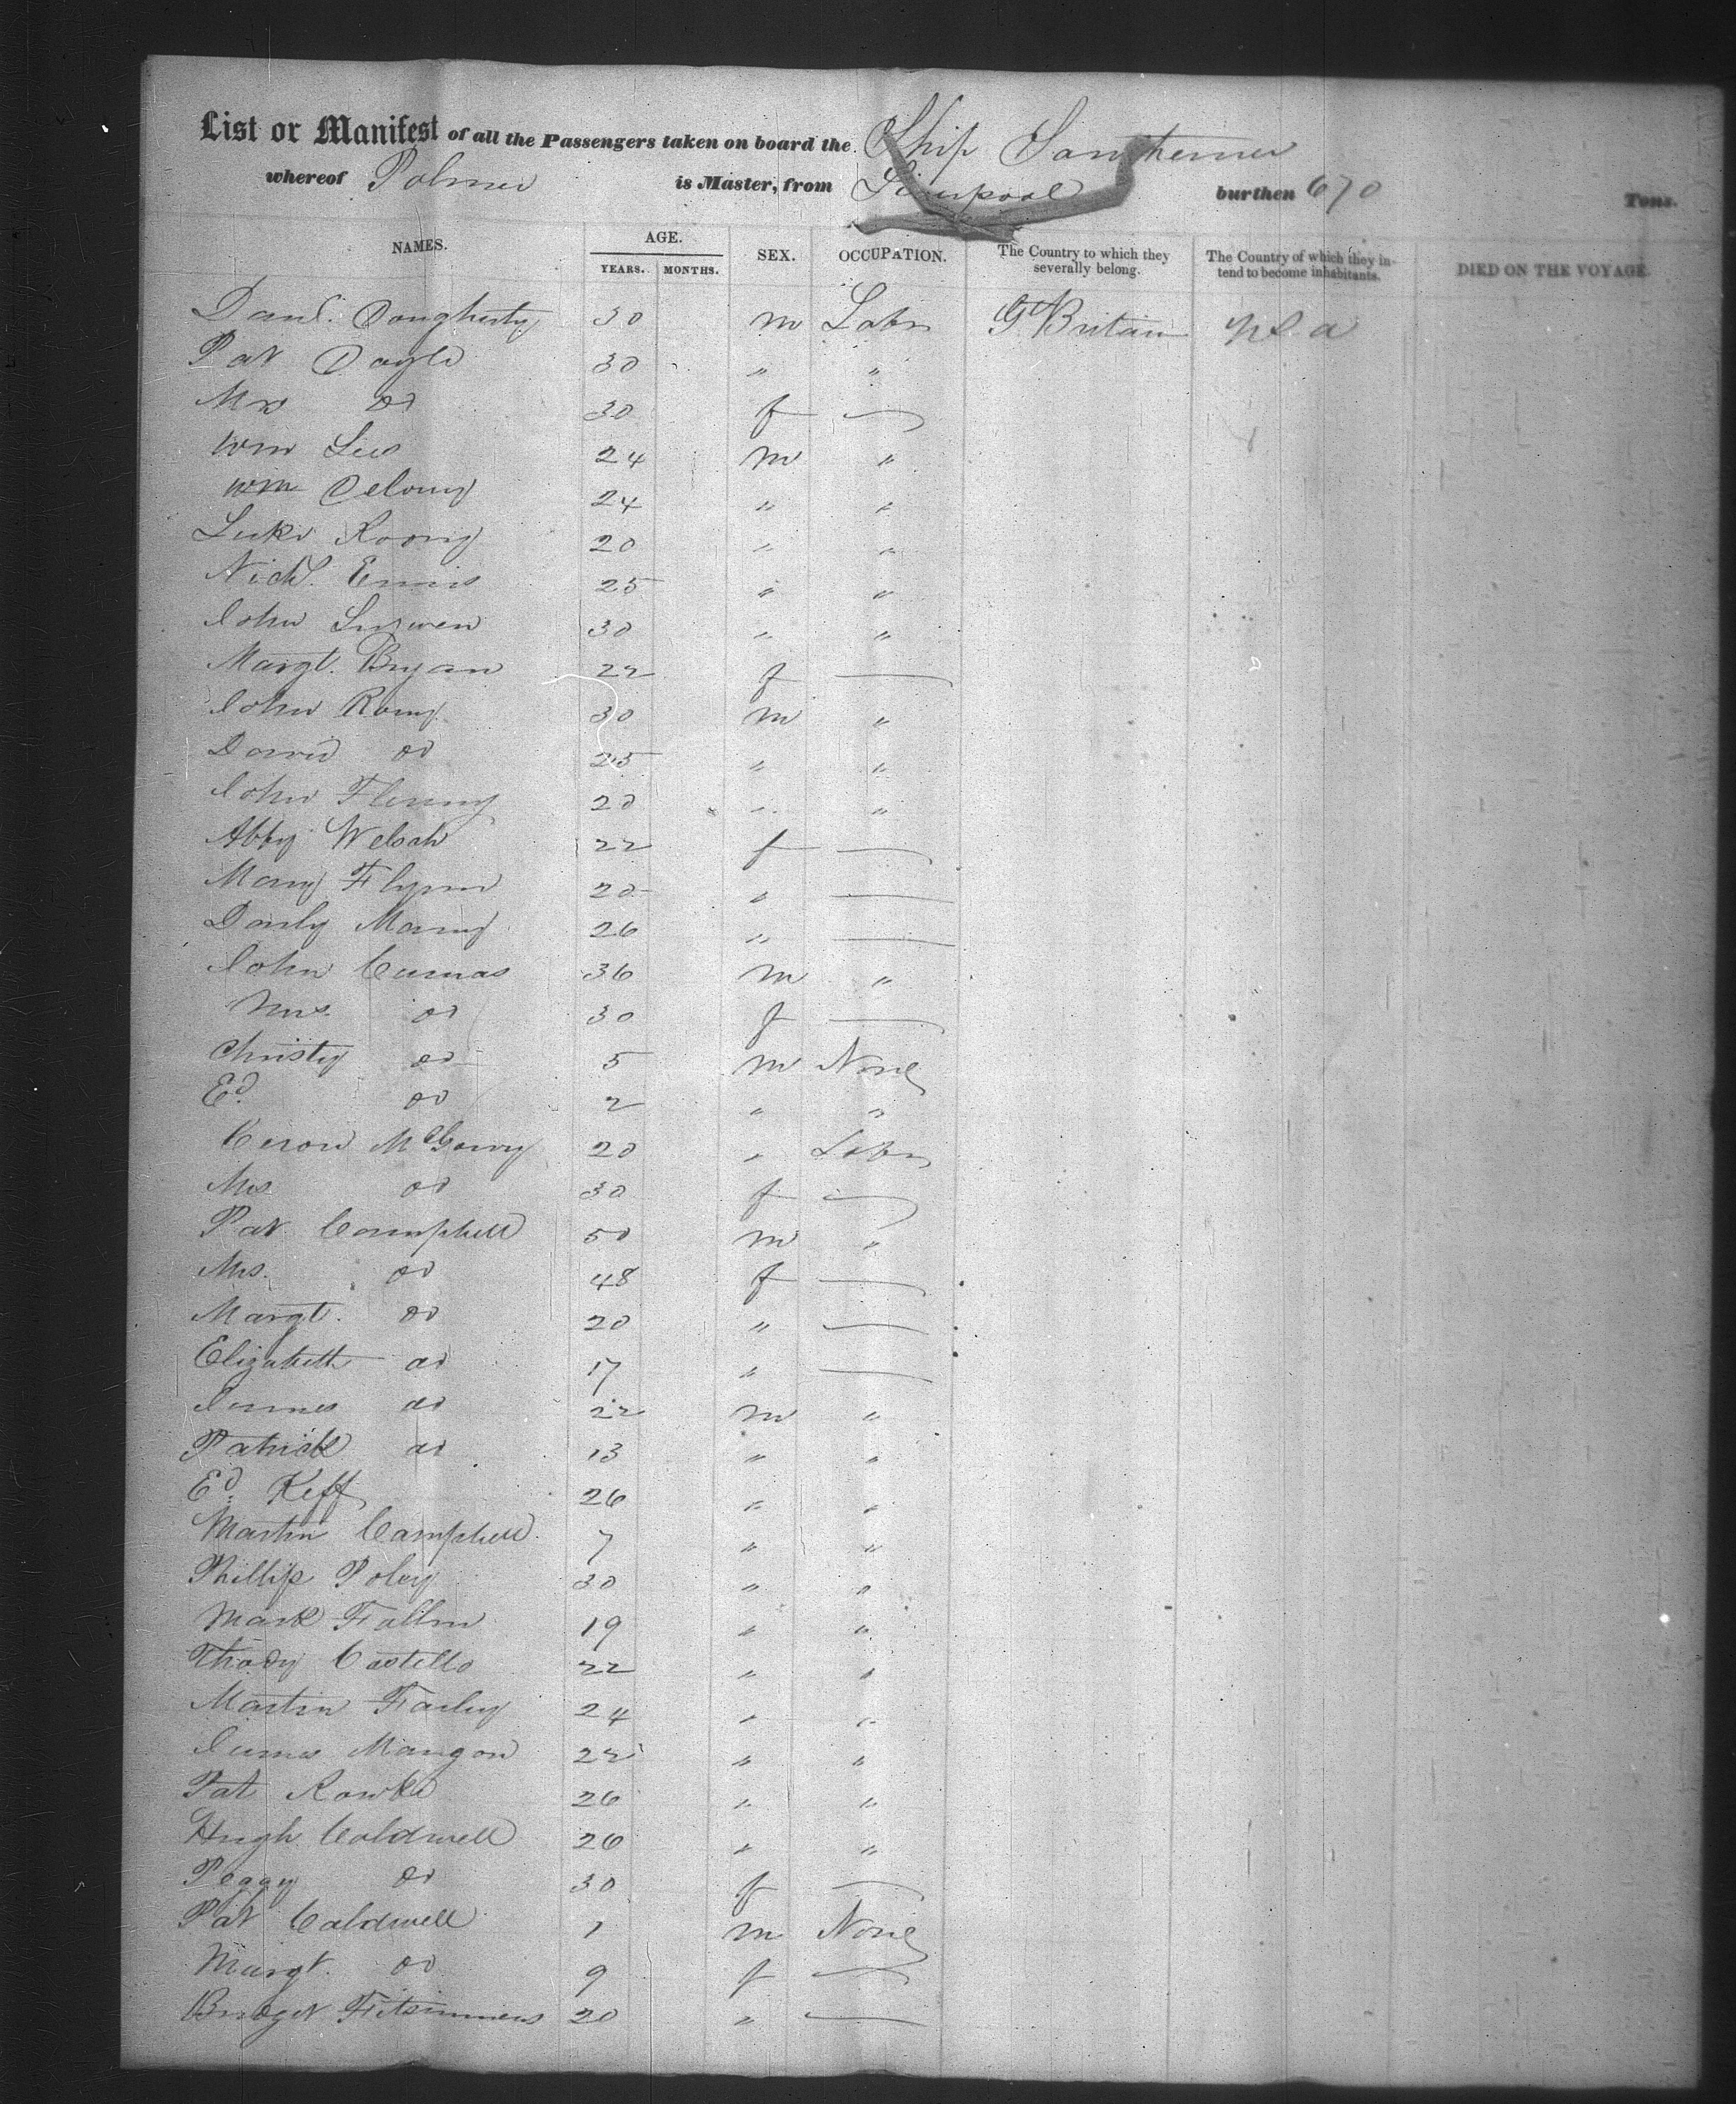 List or Manifest of all the Passengers taken on board the Ship
whereof Palmer is Master, from Liverpool burthen 670 Tons.
NAMES. AGE. YEARS. MONTHS. SEX. OCCUPATION. The Country to which they severally belong. The Country of which they intend to become inhabitants. DIED ON THE VOYAGE.
Danl. Dougherty 30 m Labr Gt Britain
Pat Doyle 30 " "
Mrs do 30 f —
Wm Lees 24 m "
Wm 24 " "
Luke Roony 20 " "
Nichl. Ennis 25 " "
John 30 " "
Margt. Bryan 22 f —
John Romy 30 m "
David do 25 " "
John Flemmy 20 " "
Abby Welsh 22 f —
Mary Flynn 20 " —
Manny 26 " —
John 36 m "
Mrs. do 30 f —
Christy do 5 m None
Ed. do 2 " "
20 " Labr
Mrs do 30 f —
Pat. Campbell 50 m "
Mrs. do 48 f —
Margt. do 20 " —
Elizabeth do 17 " —
James do 22 m "
Patrick do 13 " "
Ed. Keff 26 " "
Martin Campbell 7 " "
Phillip Poley 30 " "
Mark Fallon 19 " "
Thady Costello 22 " "
Martin Farley 24 " "
James Mangan 22 " "
Pat Rowke 26 " "
Hugh Coldwell 26 " "
Peggy do 30 f —
Pat Caldwell 1 m None
Margt. do 9 f —
Bridget Fitsimmens 20 " —